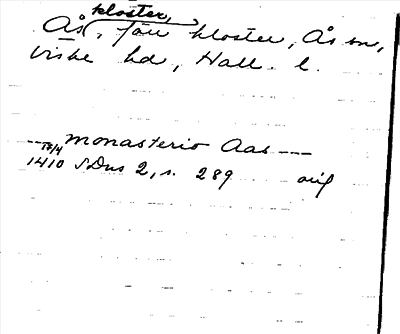 kloster,
Ås, förr kloster, Ås sn,
Viske hd, Hall. l.
--- monasterio Aas ---
18/4
1410 SDns 2, s. 289 orig